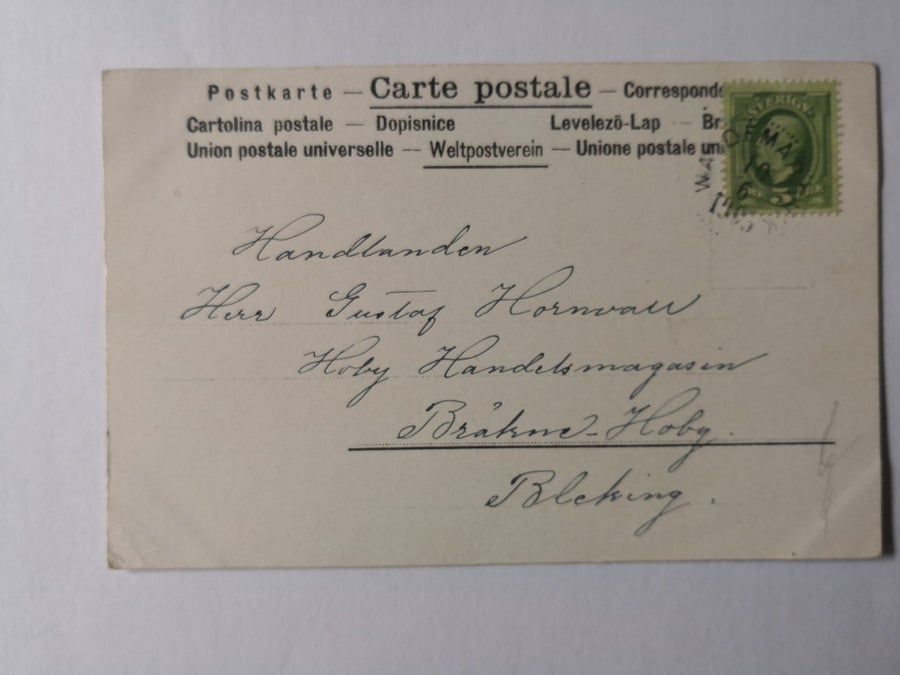 Postkarte — Carte postale — Corresponde
Cartolina postale — Dopisnice Levelezö-Lap — Br
Union postale universelle — Weltpostverein — Unione postale un
SVERIGE
10
6
1905
Handlanden
Herr Gustaf Hornwall
Hoby Handelsmagasin
Bräkne-Hoby.
Bleking.